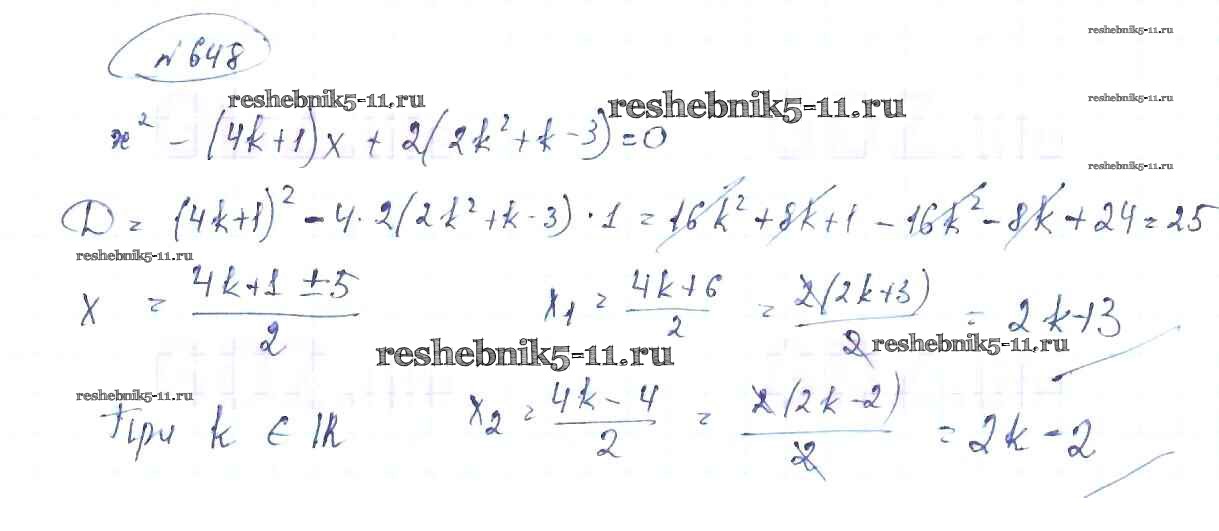 reshebnik5-11.ru
№ 648
reshebnik5-11.ru reshebnik5-11.ru reshebnik5-11.ru
x² - (4k+1)x + 2(2k² + k - 3) = 0
reshebnik5-11.ru
D = (4k+1)² - 4·2(2k² + k - 3)·1 = 16k² + 8k + 1 - 16k² - 8k + 24 = 25
reshebnik5-11.ru
x = (4k+1 ± 5)/2 x₁ = (4k+6)/2 = 2(2k+3)/2 = 2k+3
reshebnik5-11.ru reshebnik5-11.ru
reshebnik5-11.ru
При k ∈ IR x₂ = (4k - 4)/2 = 2(2k - 2)/2 = 2k - 2